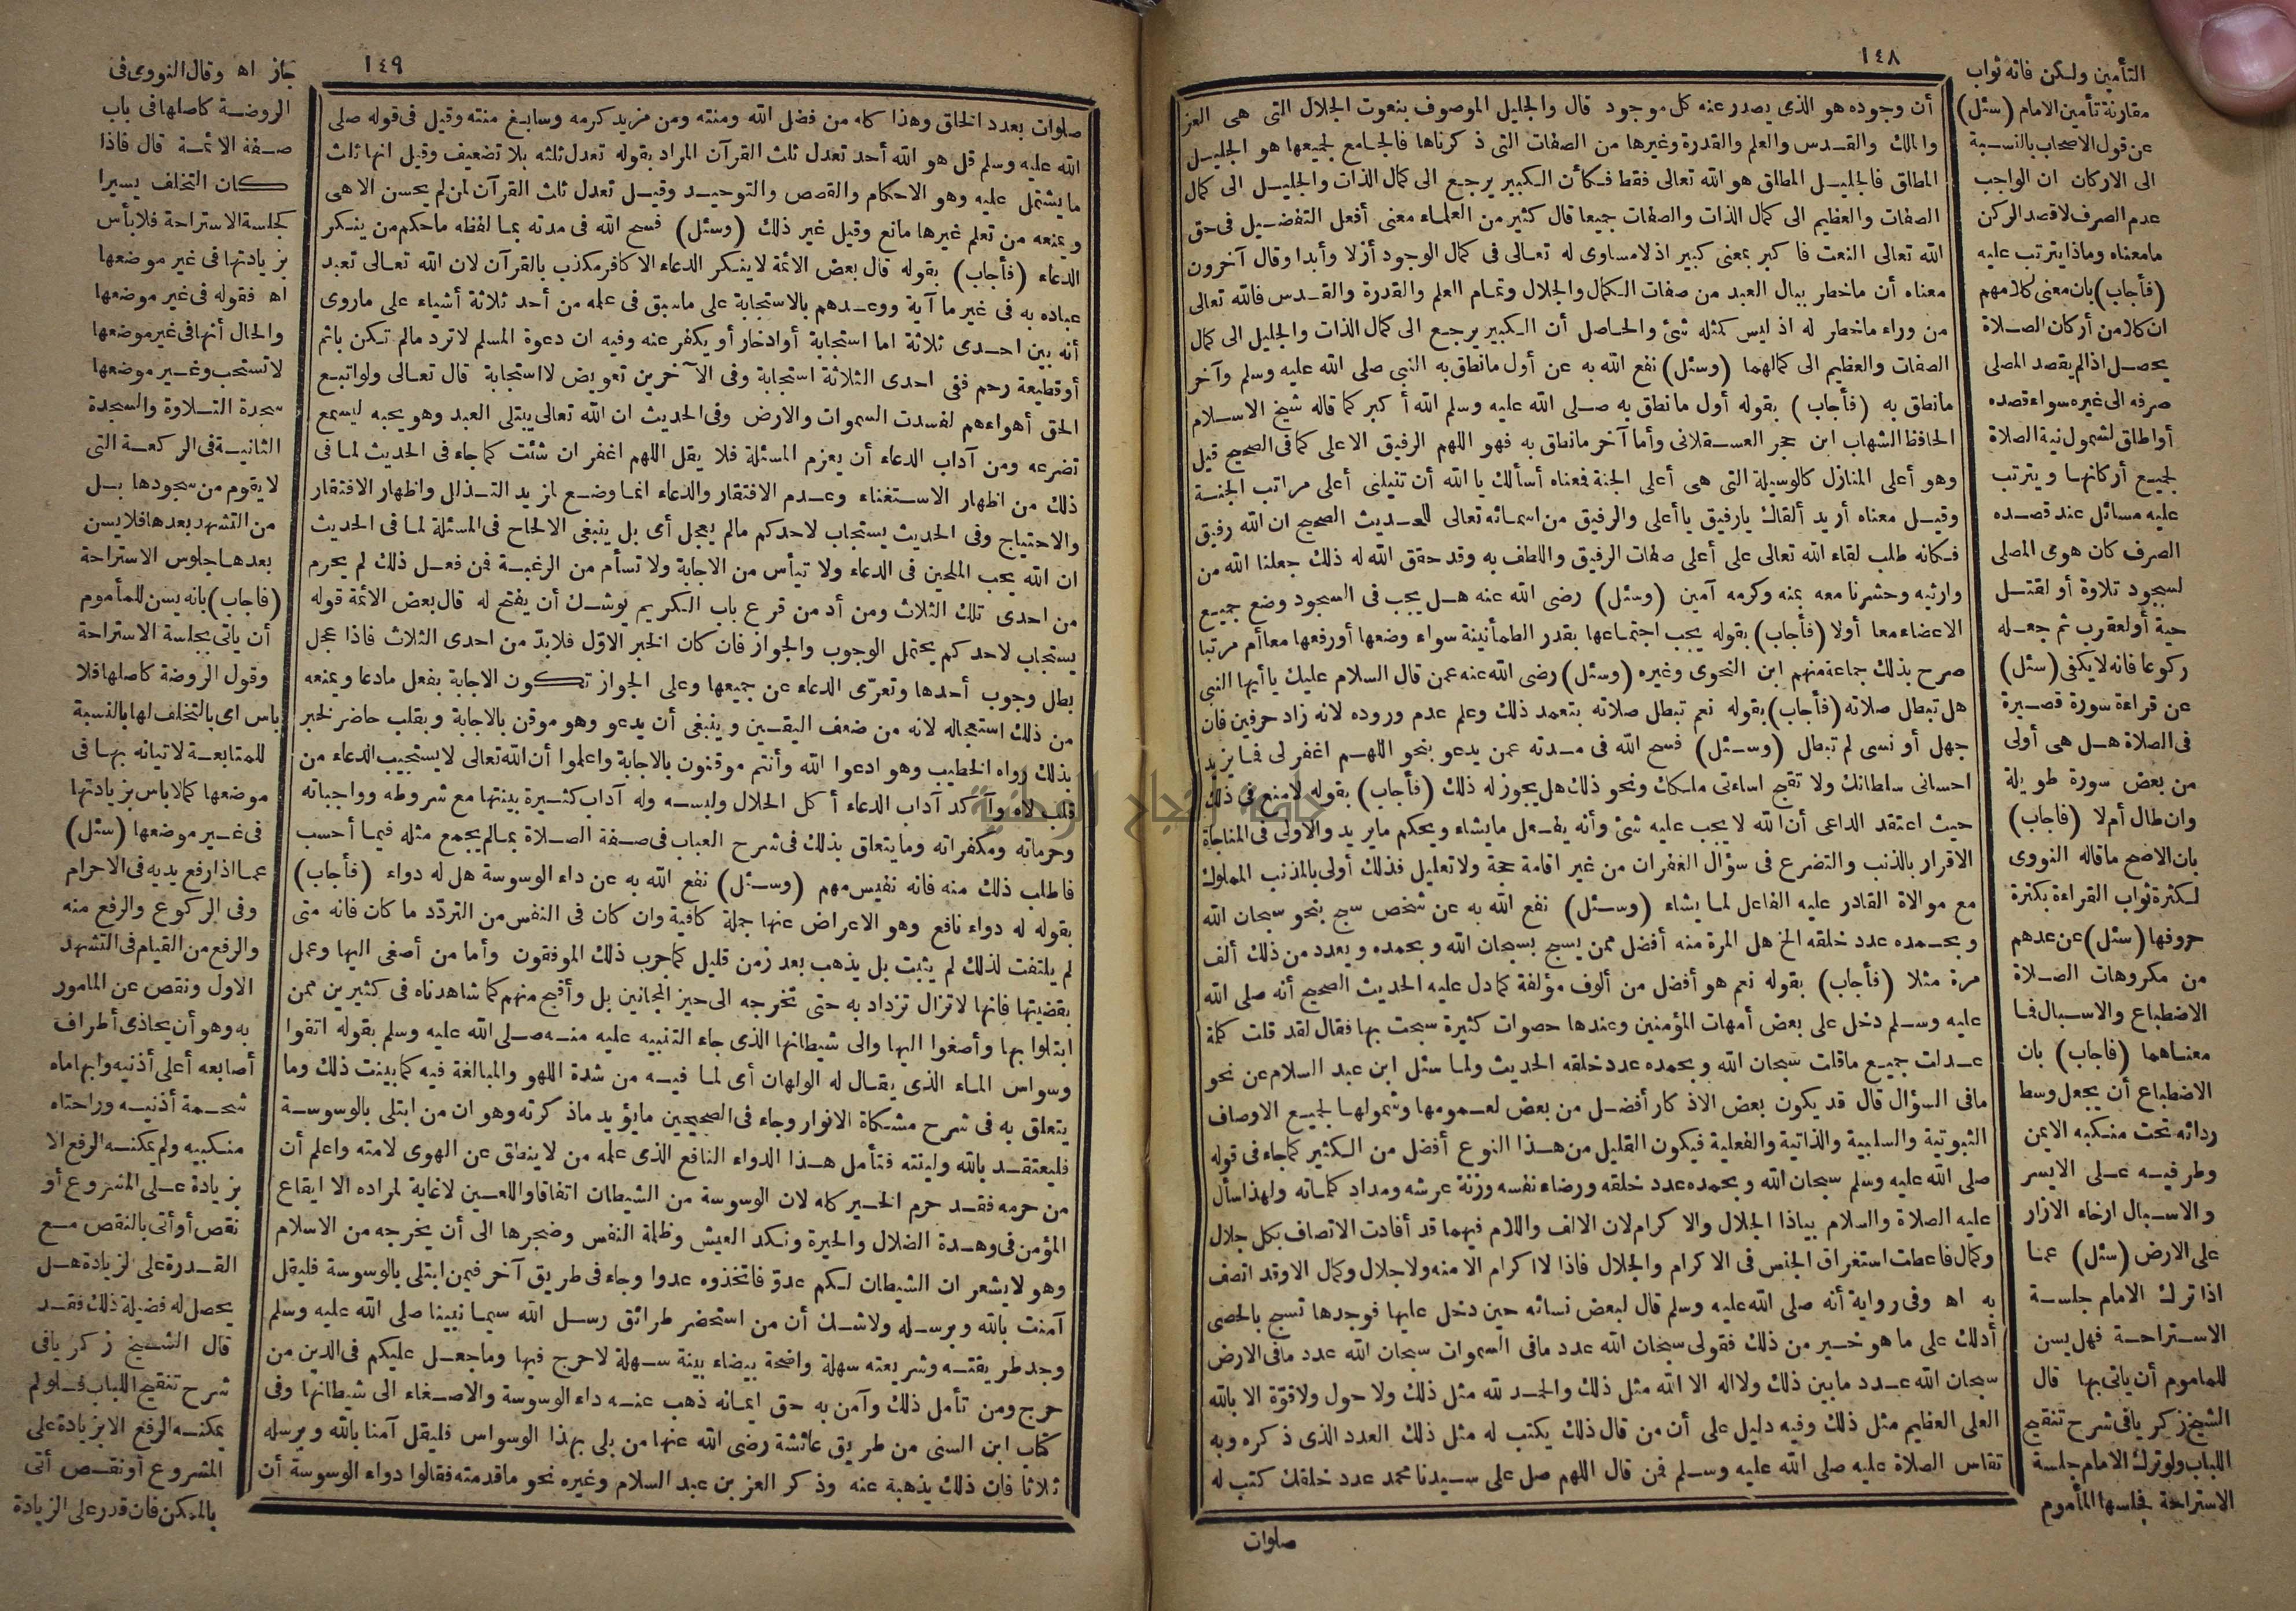 ١٤٨
أن وجوده هو الذى يصدر عنه كل موجود قال والجليل الموصوف بنعوت الجلال التى هى العز
والملك والقدس والعلم والقدرة وغيرها من الصفات التى ذكرناها فالجامع لجميعها هو الجليل
المطلق فالجليل المطلق هو الله تعالى فقط فكأن الكبير يرجع الى كمال الذات والجليل الى كمال
الصفات والعظيم الى كمال الذات والصفات جميعا قال كثير من العلماء معنى أفعل التفضيل فى حق
الله تعالى النعت فاكبر بمعنى كبير اذ لا مساوى له تعالى فى كمال الوجود أزلا وأبدا وقال آخرون
معناه أن ماخطر ببال العبد من صفات الكمال والجلال وتمام العلم والقدرة والقدس فالله تعالى
من وراء ماخطر له اذ ليس كمثله شئ والحاصل أن الكبير يرجع الى كمال الذات والجليل الى كمال
الصفات والعظيم الى كمالهما (وسئل) نفع الله به عن أول مانطق به النبى صلى الله عليه وسلم وآخر
مانطق به (فأجاب) بقوله أول مانطق به صلى الله عليه وسلم الله أكبر كما قاله شيخ الاسلام
الحافظ الشهاب ابن حجر العسقلانى وأما آخر مانطق به فهو اللهم الرفيق الاعلى كما فى الصحيح قيل
وهو أعلى المنازل كالوسيلة التى هى أعلى الجنة فمعناه أسألك يا الله أن تنيلنى أعلى مراتب الجنة
وقيل معناه أريد ألقاك يارفيق ياأعلى والرفيق من اسمائه تعالى للحديث الصحيح ان الله رفيق
فكانه طلب لقاء الله تعالى على أعلى صفات الرفيق واللطف به وقد حقق الله له ذلك جعلنا الله من
وارثيه وحشرنا معه بمنه وكرمه آمين (وسئل) رضى الله عنه هل يجب فى السجود وضع جميع
الاعضاء معا أولا (فأجاب) بقوله يجب اجتماعها بقدر الطمأنينة سواء وضعها أورفعها معاأم مرتبا
صرح بذلك جماعة منهم ابن النحوى وغيره (وسئل) رضى الله عنه عمن قال السلام عليك ياأيها النبى
هل تبطل صلاته (فأجاب) بقوله نعم تبطل صلاته بتعمد ذلك وعلم عدم وروده لانه زاد حرفين فان
جهل أو نسى لم تبطل (وسئل) فسح الله فى مدته عمن يدعو بنحو اللهم اغفر لى فما يزيد
احسانى سلطانك ولا تقبح اساءتى ملكك ونحو ذلك هل يجوز له ذلك (فأجاب) بقوله لامنع فى ذلك
حيث اعتقد الداعى أن الله لا يجب عليه شئ وأنه يفعل مايشاء ويحكم مايريد والاولى فى المناجاة
الاقرار بالذنب والتضرع فى سؤال الغفران من غير اقامة حجة ولا تعليل فذلك أولى بالمذنب المملوك
مع موالاة القادر عليه الفاعل لما يشاء (وسئل) نفع الله به عن شخص سبح بنحو سبحان الله
وبحمده عدد خلقه الخ هل المرة منه أفضل ممن يسبح بسبحان الله وبحمده ويعدد من ذلك ألف
مرة مثلا (فأجاب) بقوله نعم هو أفضل من ألوف مؤلفة كما دل عليه الحديث الصحيح أنه صلى الله
عليه وسلم دخل على بعض أمهات المؤمنين وعندها حصوات كثيرة سبحت بها فقال لقد قلت كلمة
عدلت جميع ماقلت سبحان الله وبحمده عدد خلقه الحديث ولما سئل ابن عبد السلام عن نحو
مافى السؤال قال قد يكون بعض الاذكار أفضل من بعض لعمومها وشمولها لجميع الاوصاف
الثبوتية والسلبية والذاتية والفعلية فيكون القليل من هذا النوع أفضل من الكثير كما جاء فى قوله
صلى الله عليه وسلم سبحان الله وبحمده عدد خلقه ورضاء نفسه وزنة عرشه ومداد كلماته ولهذا سأل
عليه الصلاة والسلام بياذا الجلال والاكرام لان الالف واللام فيهما قد أفادت الاتصاف بكل جلال
وكمال فاعطت استغراق الجنس فى الاكرام والجلال فاذا لااكرام الا منه ولا جلال وكمال الا وقد اتصف
به اه وفى رواية أنه صلى الله عليه وسلم قال لبعض نسائه حين دخل عليها فوجدها تسبح بالحصى
أدلك على ما هو خير من ذلك فقولى سبحان الله عدد مافى السموات سبحان الله عدد مافى الارض
سبحان الله عدد مابين ذلك ولااله الا الله مثل ذلك والحمد لله مثل ذلك ولا حول ولاقوّة الا بالله
العلى العظيم مثل ذلك وفيه دليل على أن من قال ذلك يكتب له مثل ذلك العدد الذى ذكره وبه
تقاس الصلاة عليه صلى الله عليه وسلم فمن قال اللهم صل على سيدنا محمد عدد خلقك كتب له
صلوات
التأمين ولكن فاته ثواب
مقارنة تأمين الامام (سئل)
عن قول الاصحاب بالنسبة
الى الاركان ان الواجب
عدم الصرف لا قصد الركن
مامعناه وماذا يترتب عليه
(فأجاب) بان معنى كلامهم
ان كلا من أركان الصلاة
يحصل اذا لم يقصد المصلى
صرفه الى غيره سواء قصده
أو اطلق لشمول نية الصلاة
لجميع أركانها ويترتب
عليه مسائل عند قصده
الصرف كان هوى المصلى
لسجود تلاوة أو لقتل
حية أو لعقرب ثم جعله
ركوعا فانه لا يكفى (سئل)
عن قراءة سورة قصيرة
فى الصلاة هل هى أولى
من بعض سورة طويلة
وان طال أم لا (فاجاب)
بان الاصح ما قاله النووى
لكثرة ثواب القراءة بكثرة
حروفها (سئل) عن عدهم
من مكروهات الصلاة
الاضطباع والاسبال فما
معناهما (فاجاب) بان
الاضطباع أن يجعل وسط
ردائه تحت منكبه الايمن
وطرفيه على الايسر
والاسبال ارخاء الازار
على الارض (سئل) عما
اذا ترك الامام جلسة
الاستراحة فهل يسن
للماموم أن ياتى بها قال
الشيخ زكريا فى شرح تنقيح
اللباب ولو ترك الامام جلسة
الاستراحة فجلسها المأموم
١٤٩
صلوات بعدد الخلق وهذا كله من فضل الله ومنته ومن مزيد كرمه وسابغ منته وقيل فى قوله صلى
الله عليه وسلم قل هو الله أحد تعدل ثلث القرآن المراد بقوله تعدل ثلثه بلا تضعيف وقيل انها ثلث
مايشتمل عليه وهو الاحكام والقصص والتوحيد وقيل تعدل ثلث القرآن لمن لم يحسن الا هى
ويمنعه من تعلم غيرها مانع وقيل غير ذلك (وسئل) فسح الله فى مدته بما لفظه ماحكم من ينكر
الدعاء (فأجاب) بقوله قال بعض الائمة لاينكر الدعاء الا كافر مكذب بالقرآن لان الله تعالى تعبد
عباده به فى غير ما آية ووعدهم بالاستجابة على ماسبق فى علمه من أحد ثلاثة أشياء على ماروى
أنه بين احدى ثلاثة اما استجابة أو ادخار أو يكفر عنه وفيه ان دعوة المسلم لاترد مالم تكن باثم
أو قطيعة رحم ففى احدى الثلاثة استجابة وفى الآخرين تعويض لااستجابة قال تعالى ولو اتبع
الحق أهواءهم لفسدت السموات والارض وفى الحديث ان الله تعالى يبتلى العبد وهو يحبه ليسمع
تضرعه ومن آداب الدعاء أن يعزم المسئلة فلا يقل اللهم اغفر ان شئت كما جاء فى الحديث لما فى
ذلك من اظهار الاستغناء وعدم الافتقار والدعاء انما وضع لمزيد التذلل واظهار الافتقار
والاحتياج وفى الحديث يستجاب لاحدكم مالم يعجل أى بل ينبغى الالحاح فى المسئلة لما فى الحديث
ان الله يحب الملحين فى الدعاء ولا تيأس من الاجابة ولا تسأم من الرغبة فمن فعل ذلك لم يحرم
من احدى تلك الثلاث ومن أدمن قرع باب الكريم يوشك أن يفتح له قال بعض الائمة قوله
يستجاب لاحدكم يحتمل الوجوب والجواز فان كان الخبر الاوّل فلابدّ من احدى الثلاث فاذا عجل
بطل وجوب أحدها وتعرّى الدعاء عن جميعها وعلى الجواز تكون الاجابة بفعل مادعا ويمنعه
من ذلك استعجاله لانه من ضعف اليقين وينبغى أن يدعو وهو موقن بالاجابة وبقلب حاضر لخبر
بذلك رواه الخطيب وهو ادعوا الله وأنتم موقنون بالاجابة واعلموا أن الله تعالى لايستجيب الدعاء من
قلب لاه وآكد آداب الدعاء أكل الحلال ولبسه وله آداب كثيرة بينتها مع شروطه وواجباته
وحرماته ومكفراته وما يتعلق بذلك فى شرح العباب فى صفة الصلاة بما لم يجمع مثله فيما أحسب
فاطلب ذلك منه فانه نفيس مهم (وسئل) نفع الله به عن داء الوسوسة هل له دواء (فأجاب)
بقوله له دواء نافع وهو الاعراض عنها جملة كافية وان كان فى النفس من التردّد ما كان فانه متى
لم يلتفت لذلك لم يثبت بل يذهب بعد زمن قليل كما جرب ذلك الموفقون وأما من أصغى اليها وعمل
بقضيتها فانها لاتزال تزداد به حتى تخرجه الى حيز المجانين بل وأقبح منهم كما شاهدناه فى كثيرين ممن
ابتلوا بها وأصغوا اليها والى شيطانها الذى جاء التنبيه عليه منه صلى الله عليه وسلم بقوله اتقوا
وسواس الماء الذى يقال له الولهان أى لما فيه من شدة اللهو والمبالغة فيه كما بينت ذلك وما
يتعلق به فى شرح مشكاة الانوار وجاء فى الصحيحين مايؤيد ماذكرته وهو ان من ابتلى بالوسوسة
فليعتقد بالله ولينته فتأمل هذا الدواء النافع الذى علمه من لاينطق عن الهوى لامته واعلم أن
من حرمه فقد حرم الخير كله لان الوسوسة من الشيطان اتفاقا واللعين لاغاية لمراده الا ايقاع
المؤمن فى وهدة الضلال والحيرة ونكد العيش وظلمة النفس وضجرها الى أن يخرجه من الاسلام
وهو لايشعر ان الشيطان لكم عدوّ فاتخذوه عدوا وجاء فى طريق آخر فيمن ابتلى بالوسوسة فليقل
آمنت بالله وبرسله ولاشك أن من استحضر طرائق رسل الله سيما نبينا صلى الله عليه وسلم
وجد طريقته وشريعته سهلة واضحة بيضاء بينة سهلة لاحرج فيها وماجعل عليكم فى الدين من
حرج ومن تأمل ذلك وآمن به حق ايمانه ذهب عنه داء الوسوسة والاصغاء الى شيطانها وفى
كتاب ابن السنى من طريق عائشة رضى الله عنها من بلى بهذا الوسواس فليقل آمنا بالله وبرسله
ثلاثا فان ذلك يذهبه عنه وذكر العز بن عبد السلام وغيره نحو ماقدمته فقالوا دواء الوسوسة أن
جاز اه وقال النووى فى
الروضة كاصلها فى باب
صفة الائمة قال فاذا
كان التخلف يسيرا
كجلسة الاستراحة فلا بأس
بزيادتها فى غير موضعها
اه فقوله فى غير موضعها
والحال أنها فى غير موضعها
لاتستحب وغير موضعها
سجدة التلاوة والسجدة
الثانية فى الركعة التى
لايقوم من سجودها بل
من التشهد بعدها فلا يسن
بعدها جلوس الاستراحة
(فاجاب) بانه يسن للمأموم
أن ياتى بجلسة الاستراحة
وقول الروضة كاصلها فلا
باس اى بالتخلف لها بالنسبة
للمتابعة لاتيانه بها فى
موضعها كما لاباس بزيادتها
فى غير موضعها (سئل)
عما اذا رفع يديه فى الاحرام
وفى الركوع والرفع منه
والرفع من القيام فى التشهد
الاول ونقص عن المامور
به وهو أن يحاذى أطراف
أصابعه أعلى أذنيه وابهاماه
شحمة أذنيه وراحتاه
منكبيه ولم يمكنه الرفع الا
بزيادة على المشروع أو
نقص أو أتى بالنقص مع
القدرة على لزيادة هل
يحصل له فضيلة ذلك فقد
قال الشيخ زكريا فى
شرح تنقيح اللباب فلو لم
يمكنه الرفع الا بزيادة على
المشروع أو نقص أتى
بالممكن فان قدر على الزيادة